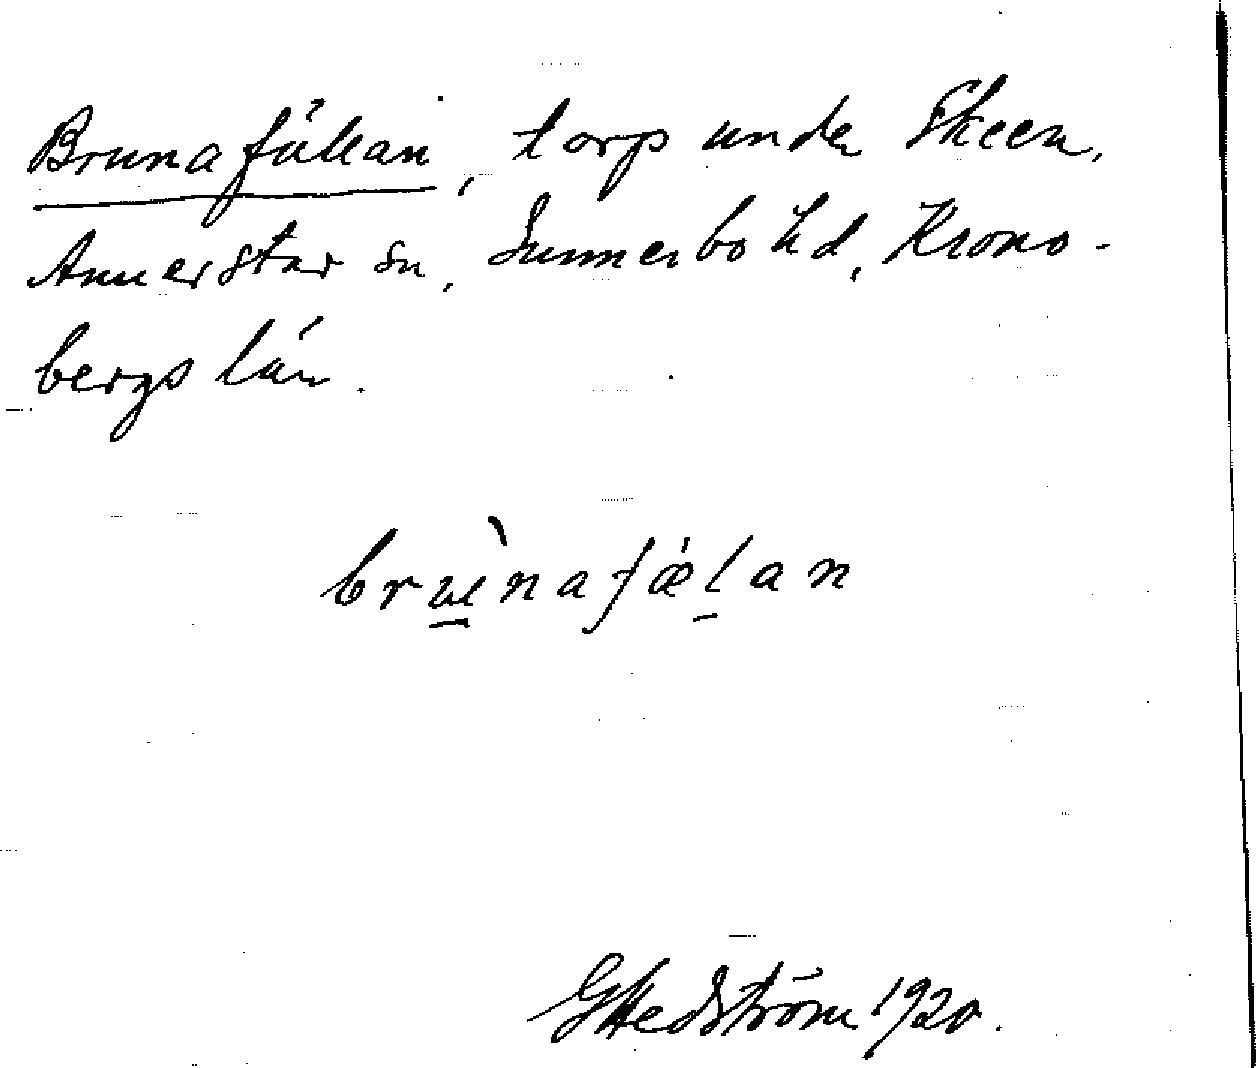 Brunafällan, torp under Skeen,
Annerstad sn, Sunnerbo hd, Krono-
bergs län.
brùnafǽlan
GHedström 1920.